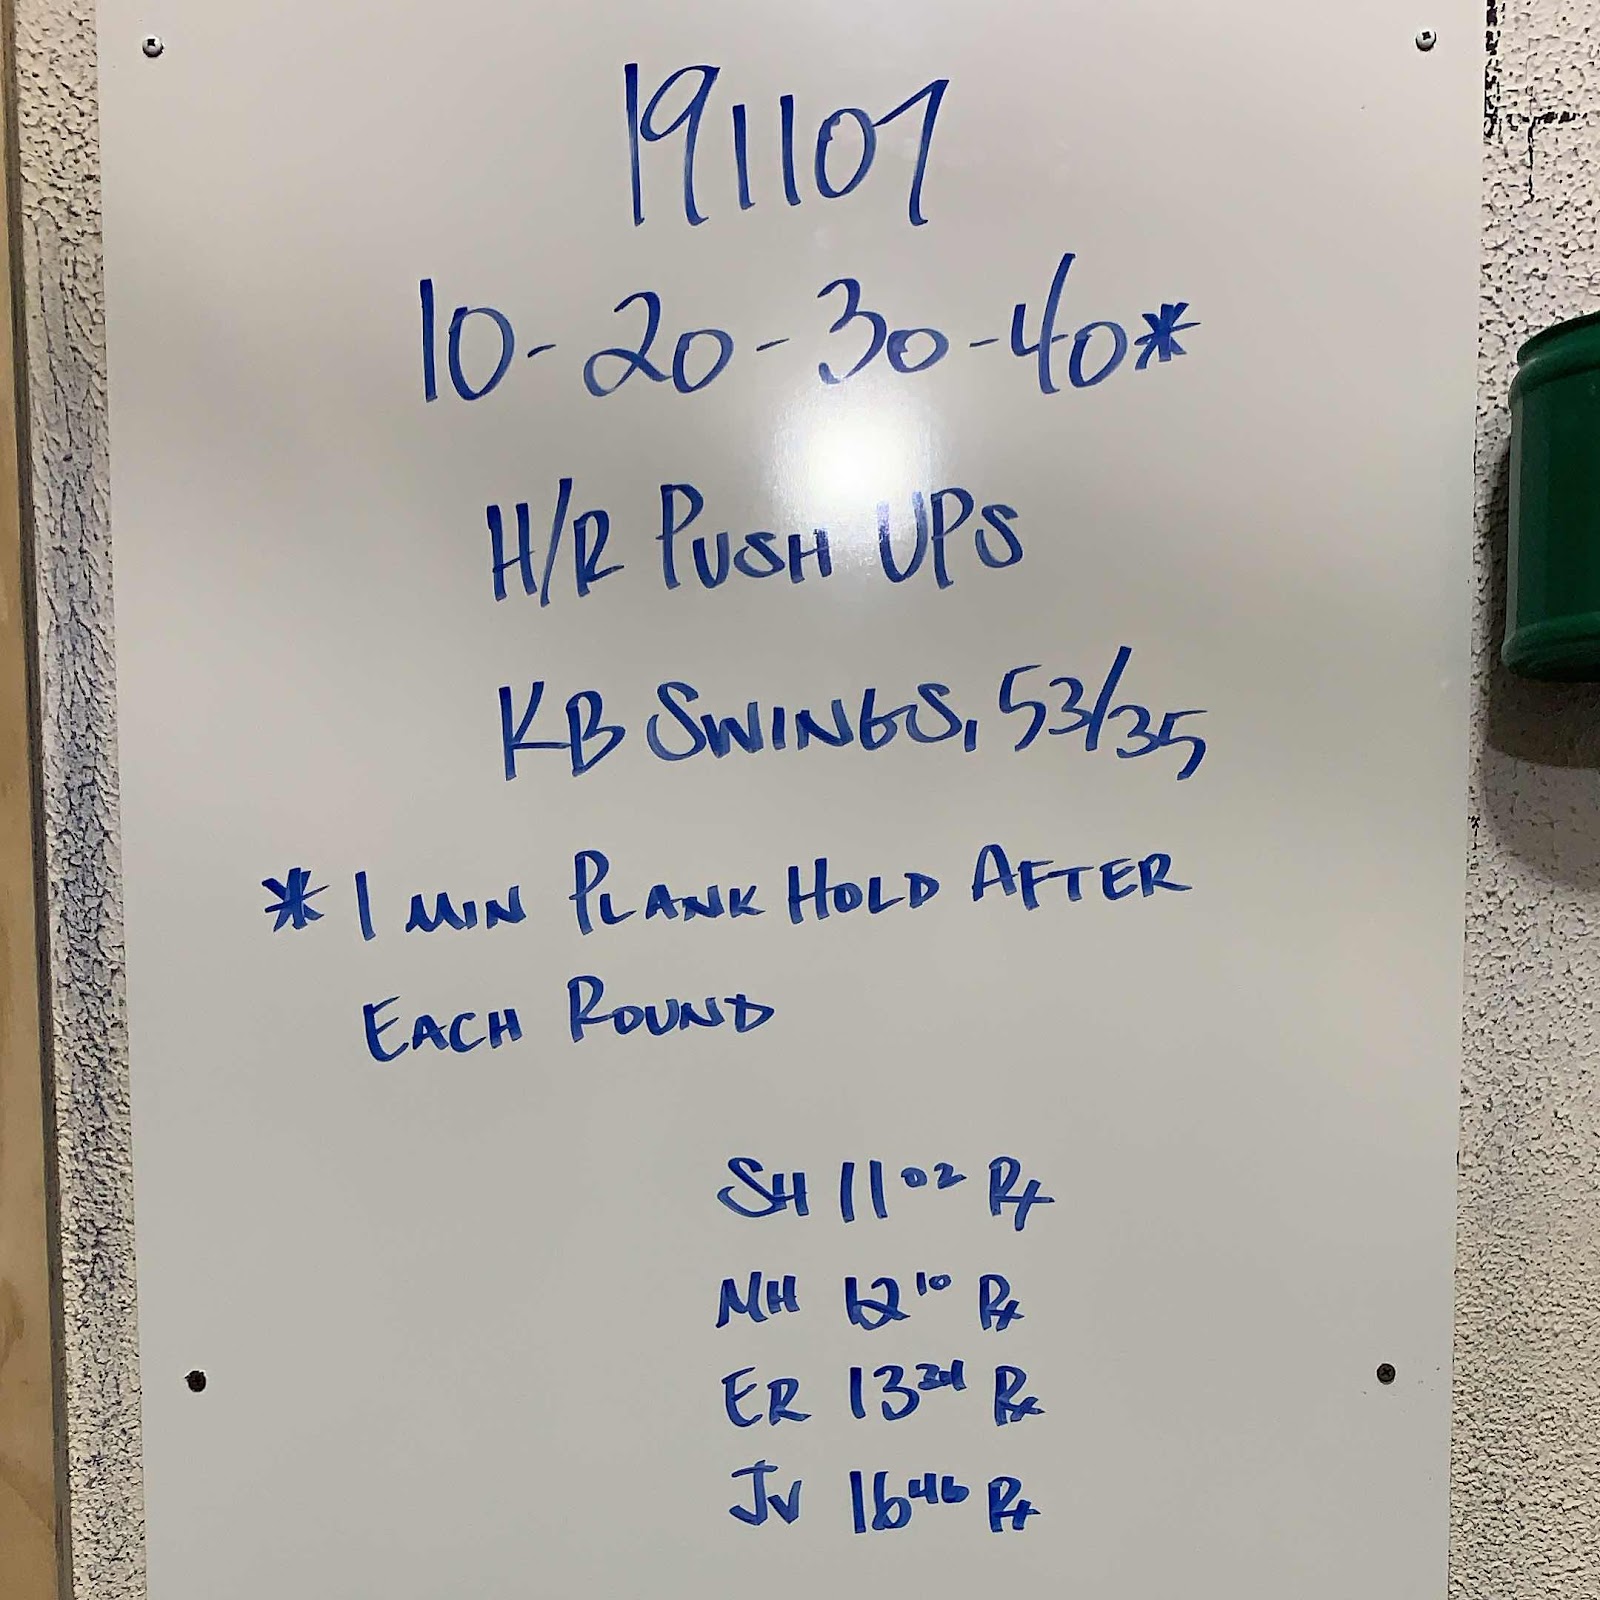 191107
10-20-30-40*
H/R PUSH UPS
KB SWINGS, 53/35
* 1 MIN PLANK HOLD AFTER
EACH ROUND
SH 11 02 Rx
MH 12 10 Rx
ER 13 Rx
JV 16 46 Rx